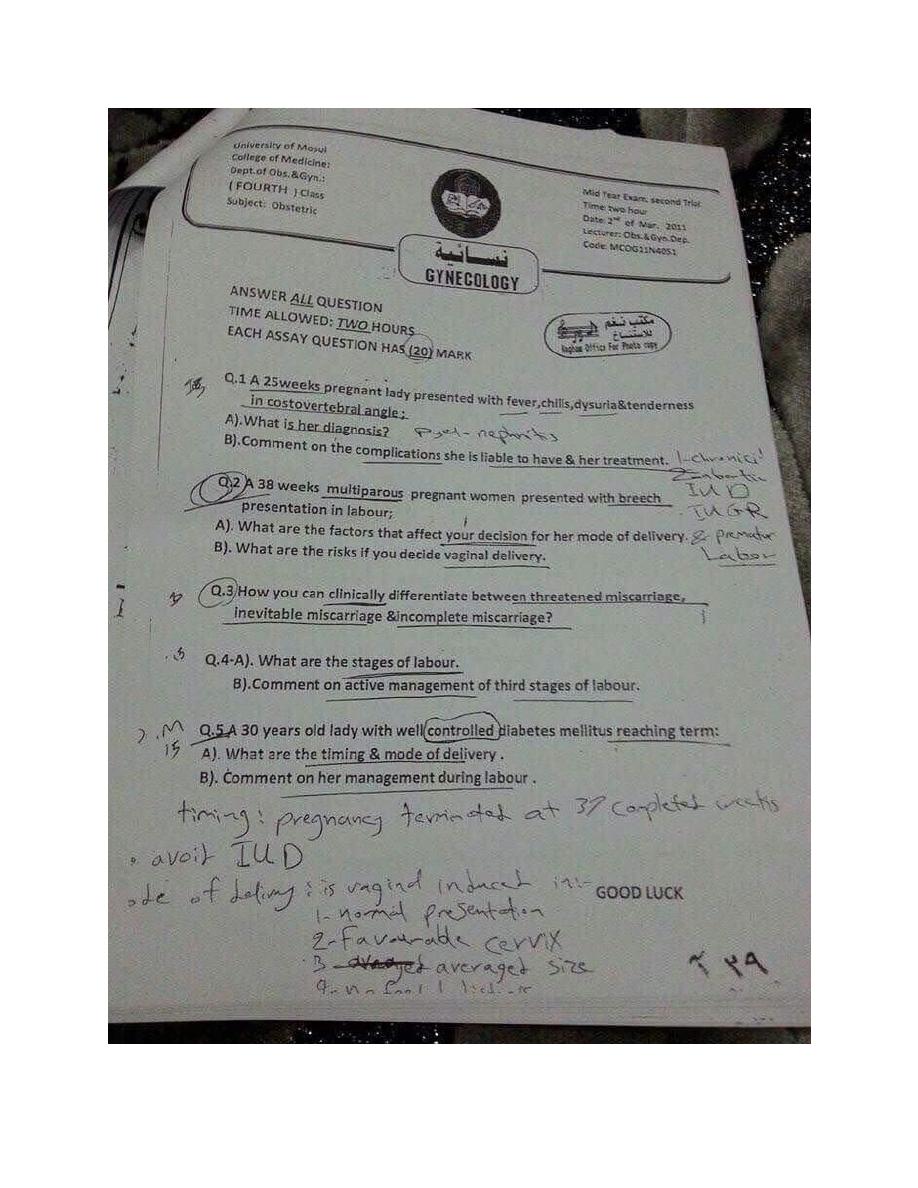 University of Mosul
College of Medicine:
Dept.of Obs.&Gyn.:
( FOURTH ) Class
Subject: Obstetric
Mid Year Exam, second Trial
Time: two hour
Date: 2nd of Mar. 2011
Lecturer: Obs.&Gyn.Dep.
Code: MCOG11N4051
نسائية
GYNECOLOGY
ANSWER ALL QUESTION
TIME ALLOWED: TWO HOURS
EACH ASSAY QUESTION HAS (20) MARK
مكتب نغم
للاستنساخ
Nagham Office For Photo copy
Q.1 A 25weeks pregnant lady presented with fever,chills,dysuria&tenderness
in costovertebral angle;
A).What is her diagnosis? pyel-nephritis
B).Comment on the complications she is liable to have & her treatment.
IUD
IUGR
Q.2 A 38 weeks multiparous pregnant women presented with breech
presentation in labour;
A). What are the factors that affect your decision for her mode of delivery.
B). What are the risks if you decide vaginal delivery.
Labor
Q.3 How you can clinically differentiate between threatened miscarriage,
inevitable miscarriage &incomplete miscarriage?
Q.4-A). What are the stages of labour.
B).Comment on active management of third stages of labour.
15
Q.5.A 30 years old lady with well controlled diabetes mellitus reaching term:
A). What are the timing & mode of delivery .
B). Comment on her management during labour .
timing: pregnancy terminated at 37 completed weeks
avoit IUD
ode of delivry : is vaginal induced in:-
GOOD LUCK
1- normal presentation
2- Favourable cervix
3- averaged size
٢٣٩